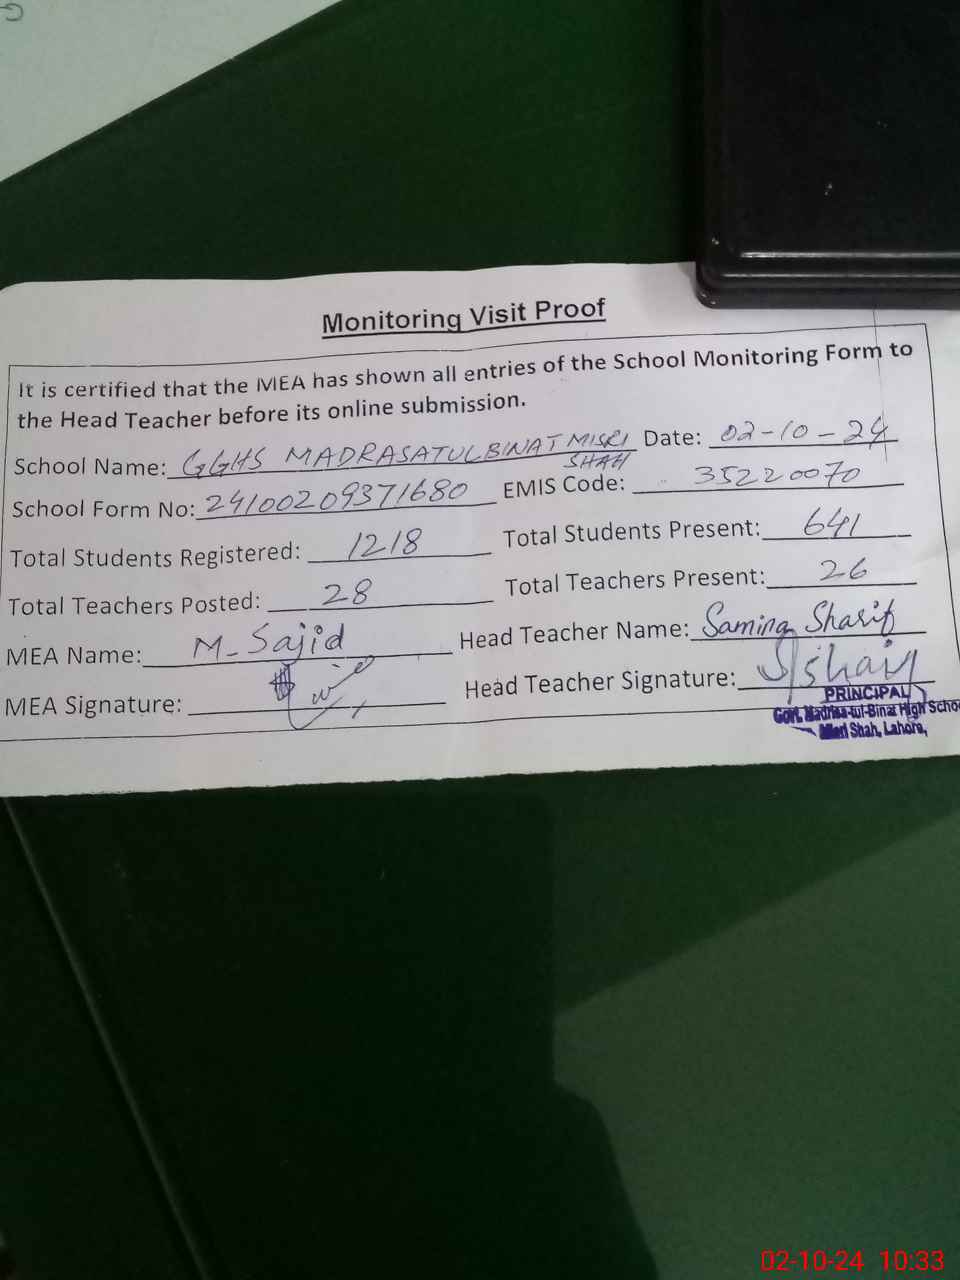 Monitoring Visit Proof
It is certified that the MEA has shown all entries of the School Monitoring Form to
the Head Teacher before its online submission.
School Name: GGHS MADRASATULBINAT MISRI SHAH Date: 02-10-24
School Form No: 24100209371680 EMIS Code: 35220070
Total Students Registered: 1218 Total Students Present: 641
Total Teachers Posted: 28 Total Teachers Present: 26
MEA Name: M-Sajid Head Teacher Name: Samina Sharif
MEA Signature: Head Teacher Signature:
PRINCIPAL
Govt. Madrisa-tul-Binat High Schoo
Misri Shah, Lahore,
02-10-24 10:33